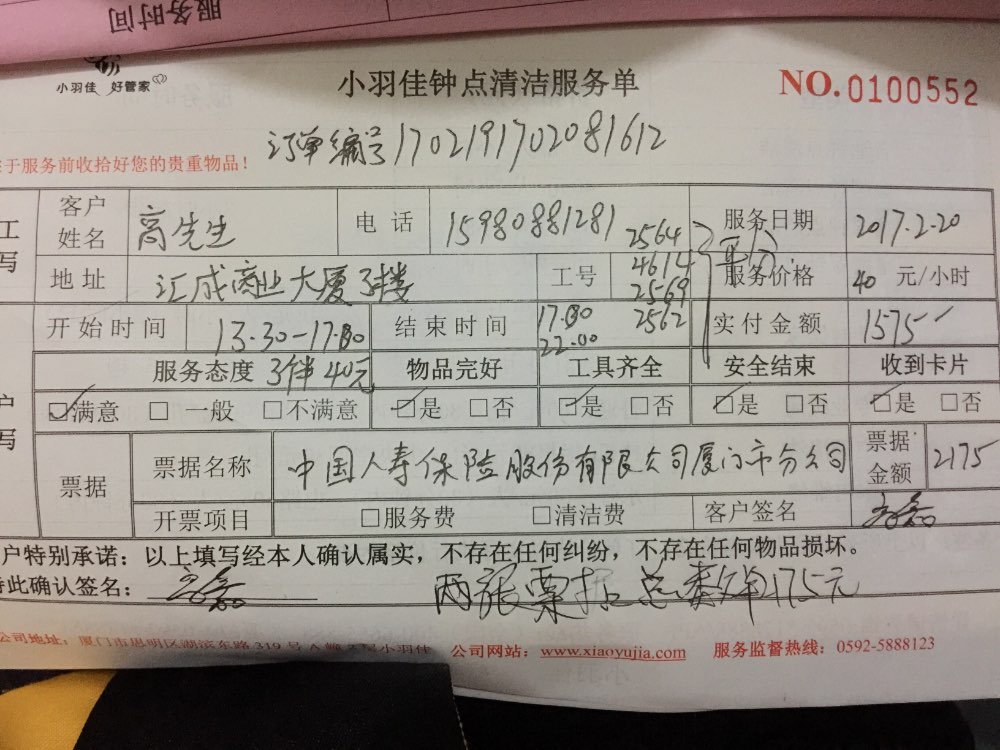 服务时间
小羽佳 好管家
小羽佳钟点清洁服务单
NO.0100552
订单编号1702191702081612
于服务前收拾好您的贵重物品！
工
写
客户姓名 高先生 电话 15980881281 服务日期 2017.2.20
地址 汇成商业大厦3楼 工号 2564 4614 2569 2562 平分 服务价格 40 元/小时
开始时间 13.30-17.00 结束时间 17.00 22.00 实付金额 1575
服务态度 3伴40元 物品完好 工具齐全 安全结束 收到卡片
户
写
☑满意 □一般 □不满意 ☑是 □否 ☑是 □否 ☑是 □否 ☑是 □否
票据 票据名称 中国人寿保险股份有限公司厦门市分公司 票据金额 2175
开票项目 □服务费 □清洁费 客户签名
户特别承诺：以上填写经本人确认属实，不存在任何纠纷，不存在任何物品损坏。
此确认签名：
两张票据总
175元
公司地址：厦门市思明区湖滨东路319号A 小羽佳 公司网站：www.xiaoyujia.com 服务监督热线：0592-5888123